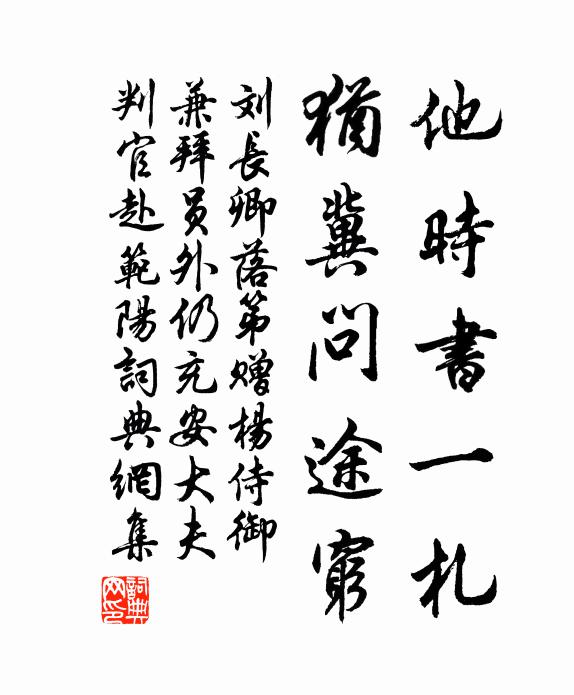 他時書一札
猶冀問途窮
刘長卿落第贈楊侍御
兼拜員外仍充安大夫
判官赴範陽詞典網集
詞典网印